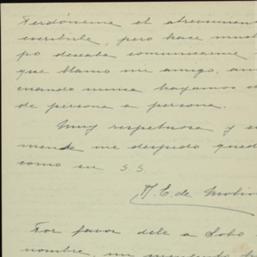 Perdóneme el atrevimien
escribirle, pero hace much
po deseaba comunicarme
que llamo mi amigo, aun
cuando nunca hayamos
de persona a persona.
Muy respetuosa y
mende me despido qued
como su S. S.
M. E. de Molin
Por favor dele a Lobo
nombre, un